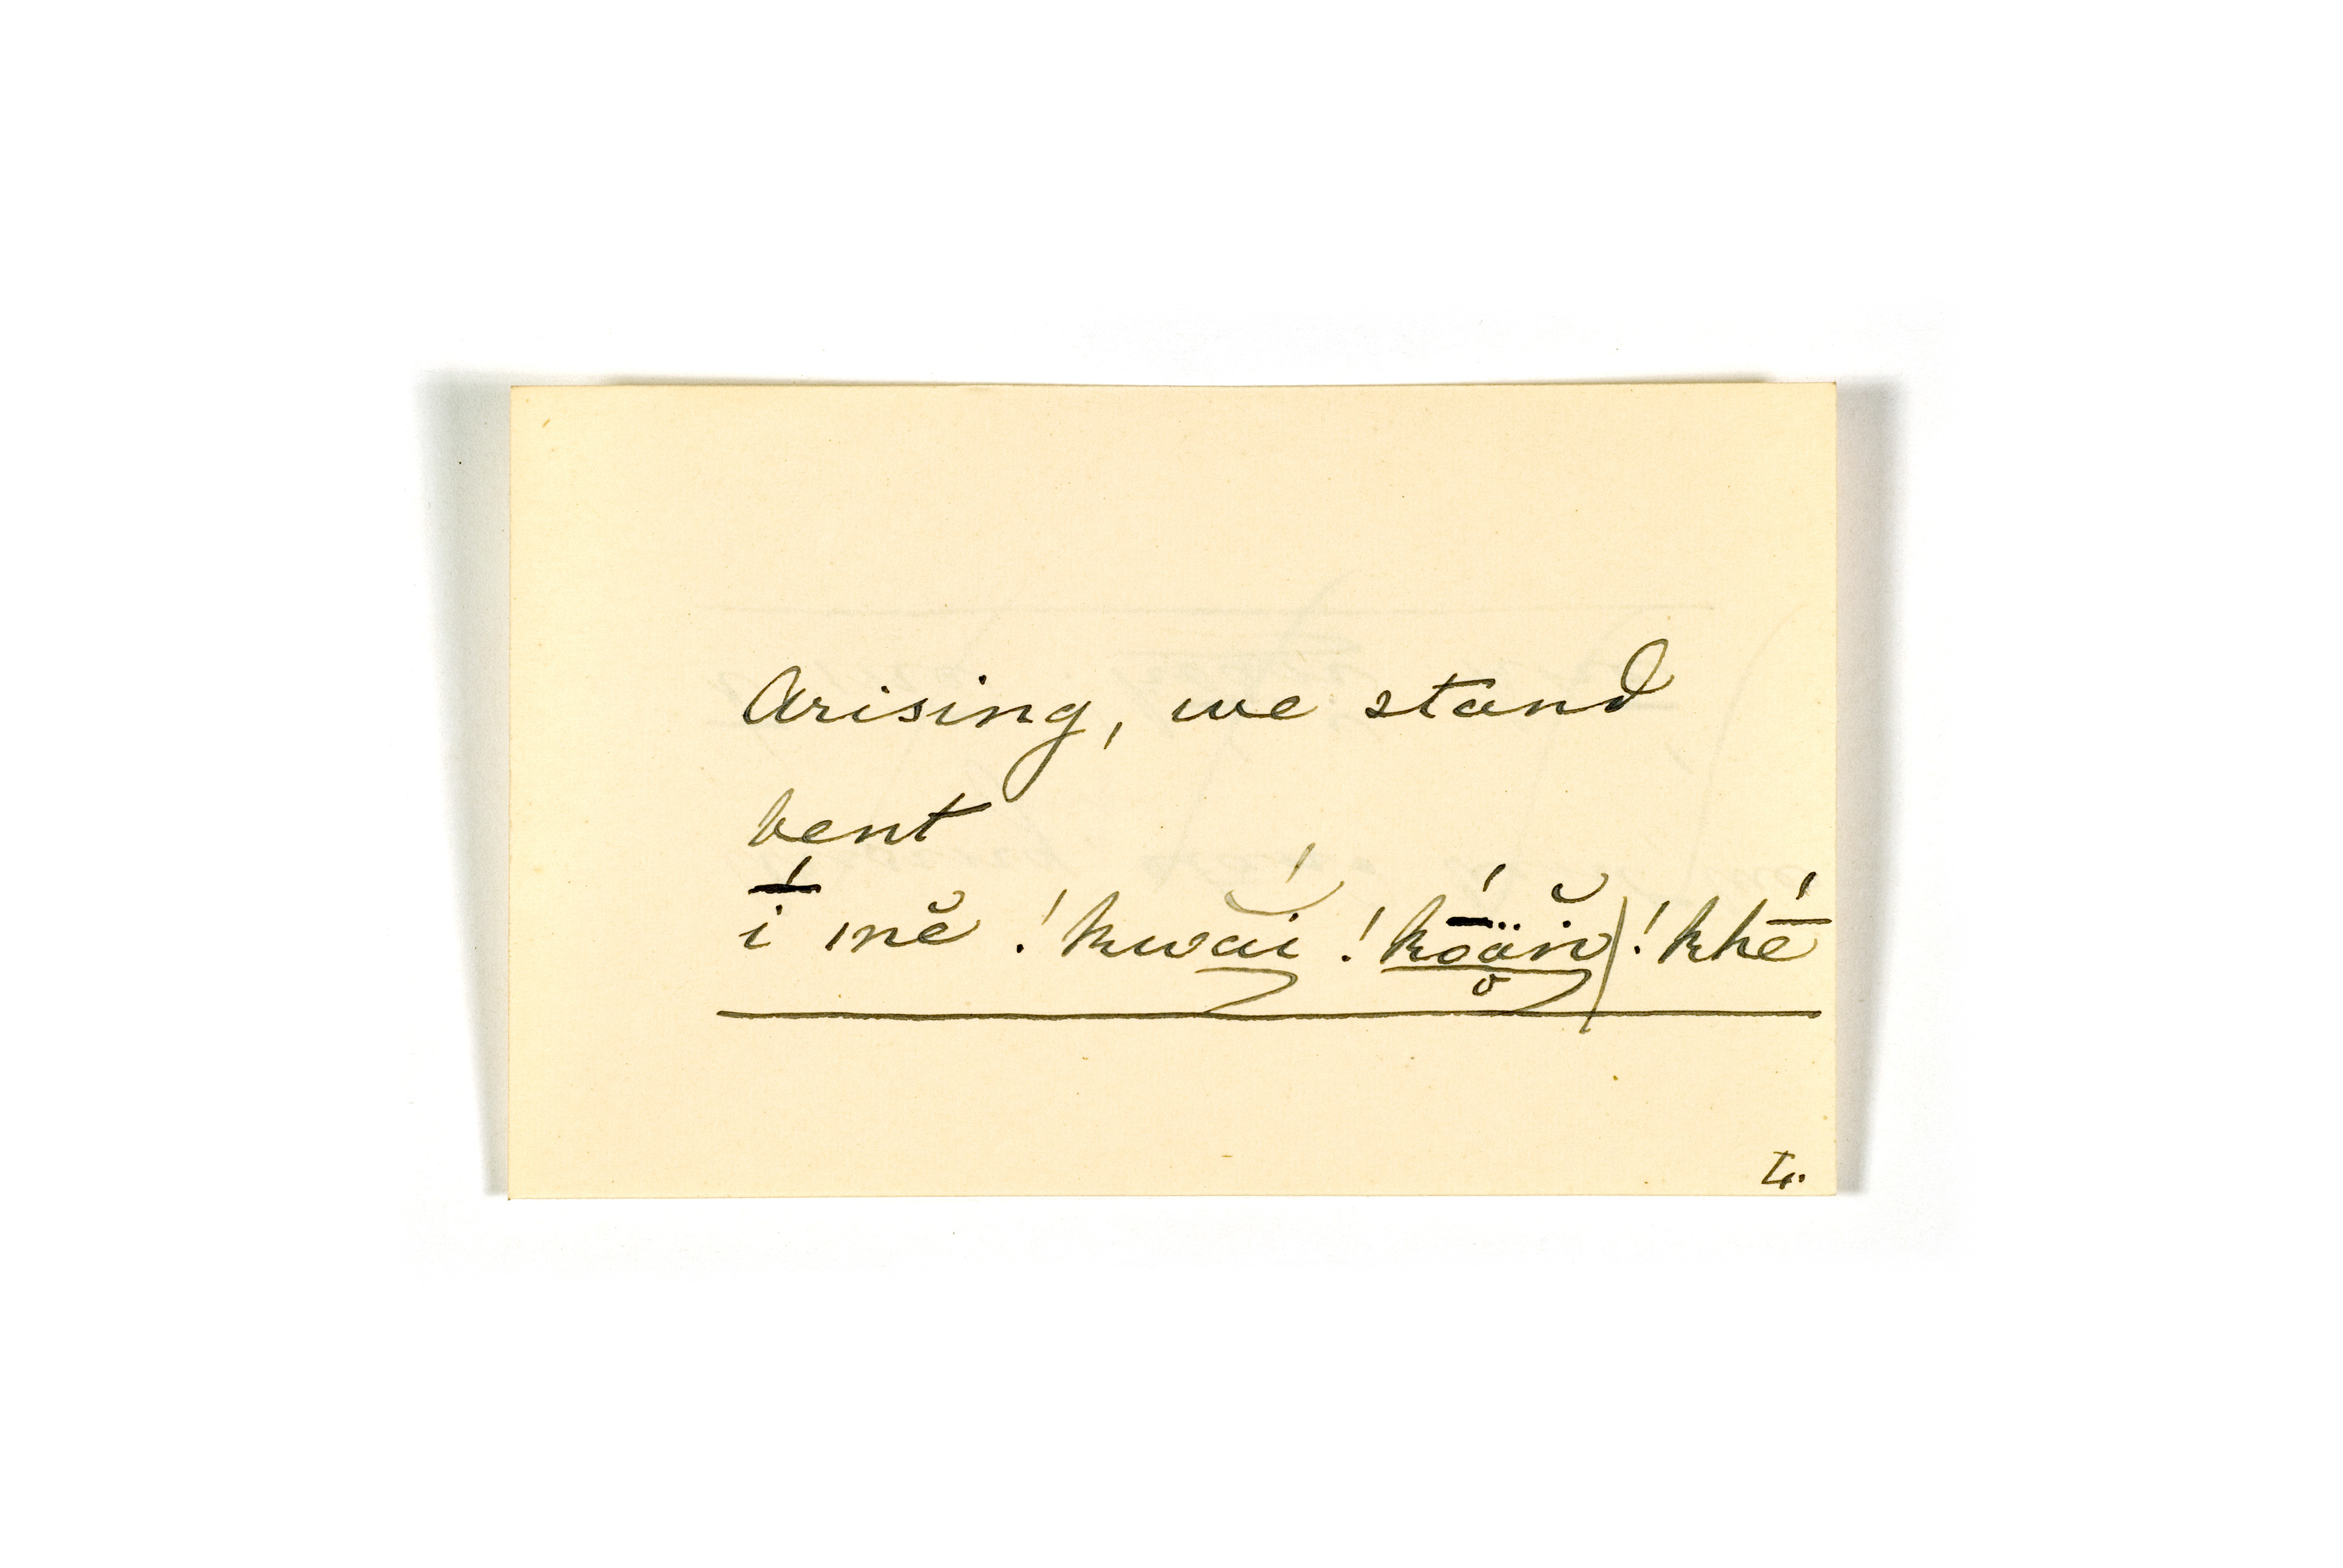 Arising, we stand
bent
ī́ mĕ !kwắi !kṓä̆ṅ) !khḗ
L.